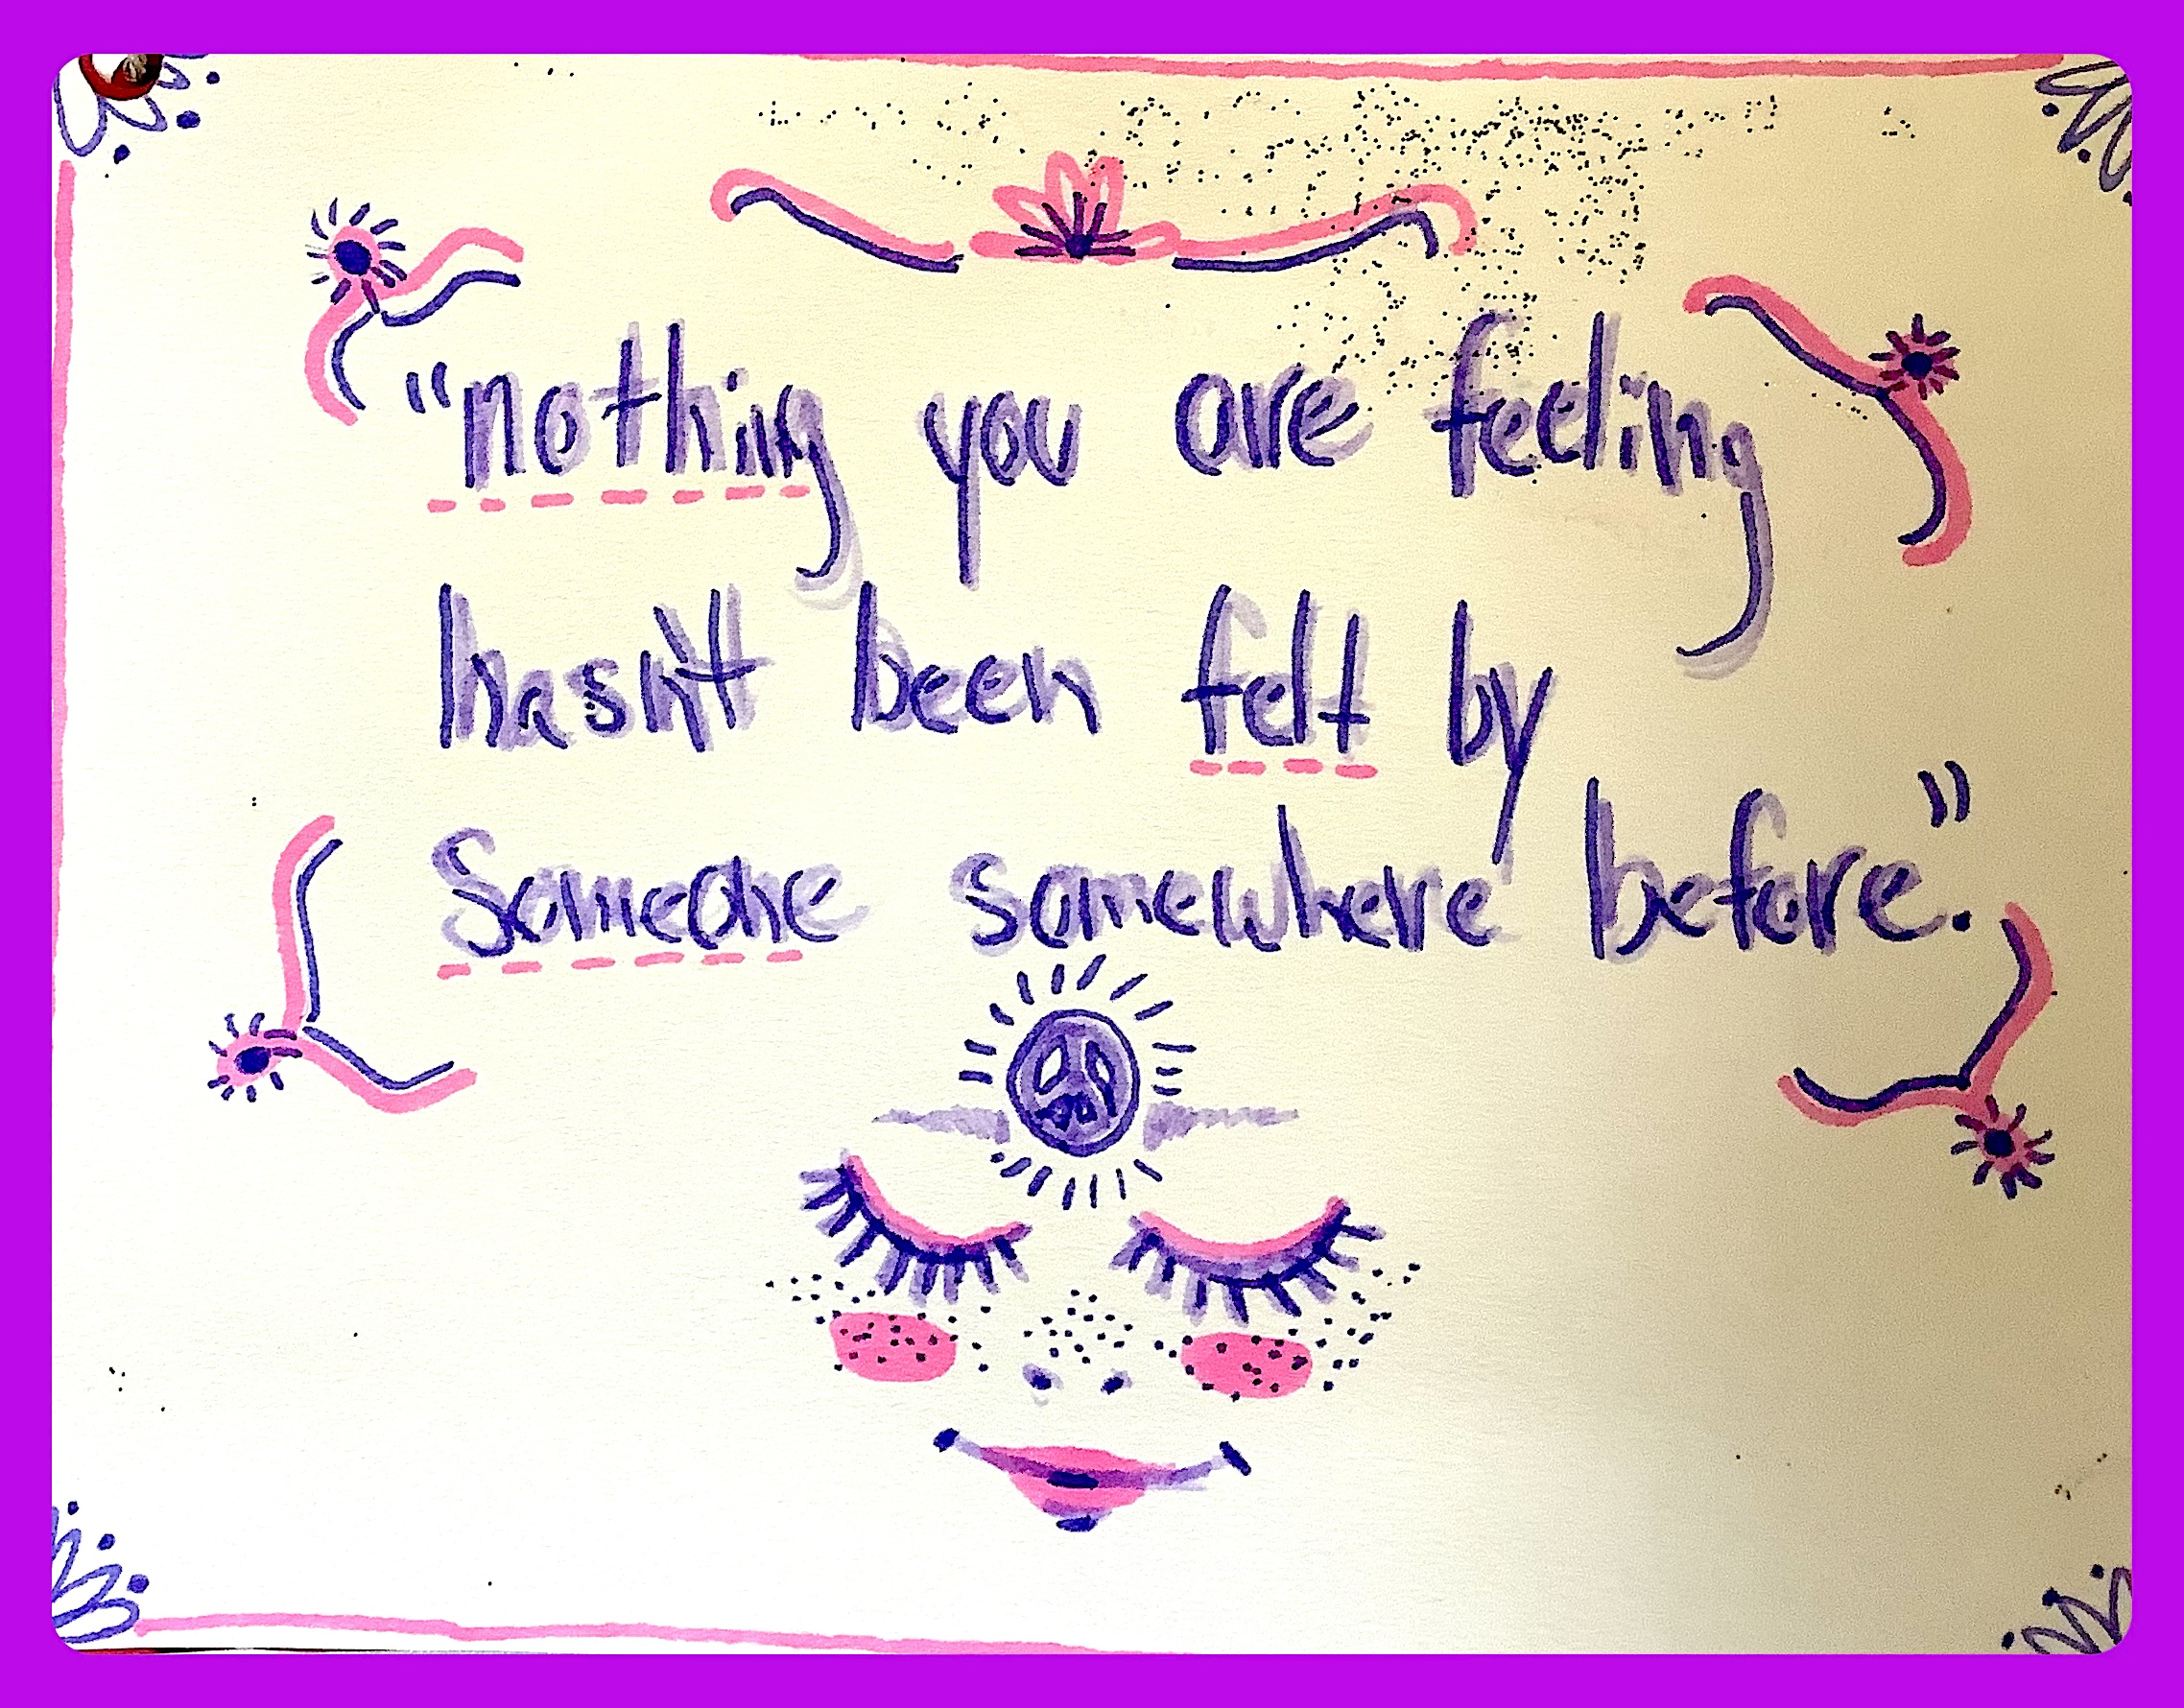 "nothing you are feeling
hasn't been felt by
Someone somewhere before."